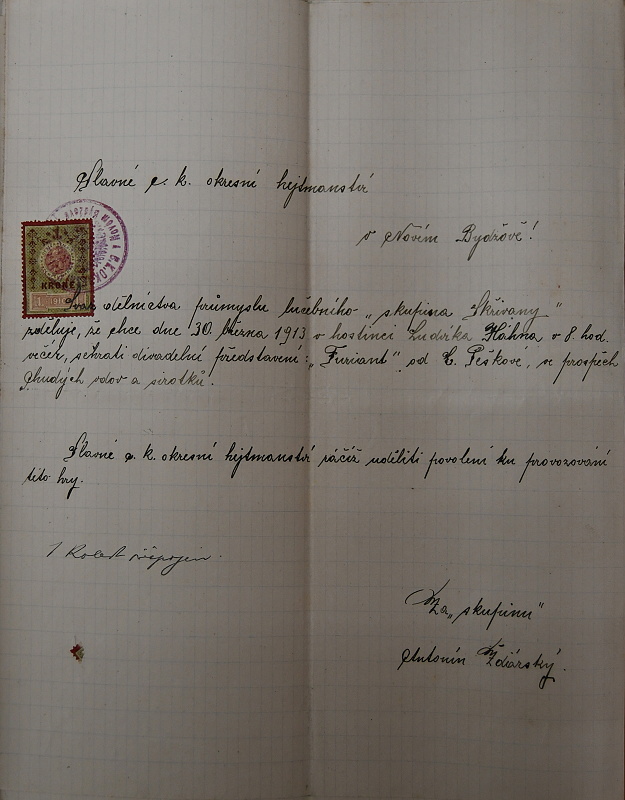 Slavné c. k. okresní hejtmanství
v Novém Bydžově!
KRONE
1 1910
Svaz dělnictva průmyslu lučebního „skupina Skřivany"
zděluje, že chce dne 30. března 1913 v hostinci Ludvíka Háhna v 8. hod.
večer, sehráti divadelní představení: „Furiant" od C. Peškové, ve prospěch
chudých vdov a sirotků.
Slavné c. k. okresní hejtmanství ráčíž uděliti povolení ku provozování
této hry.
1 připojen.
Za „skupinu"
Antonín Ždiárský.